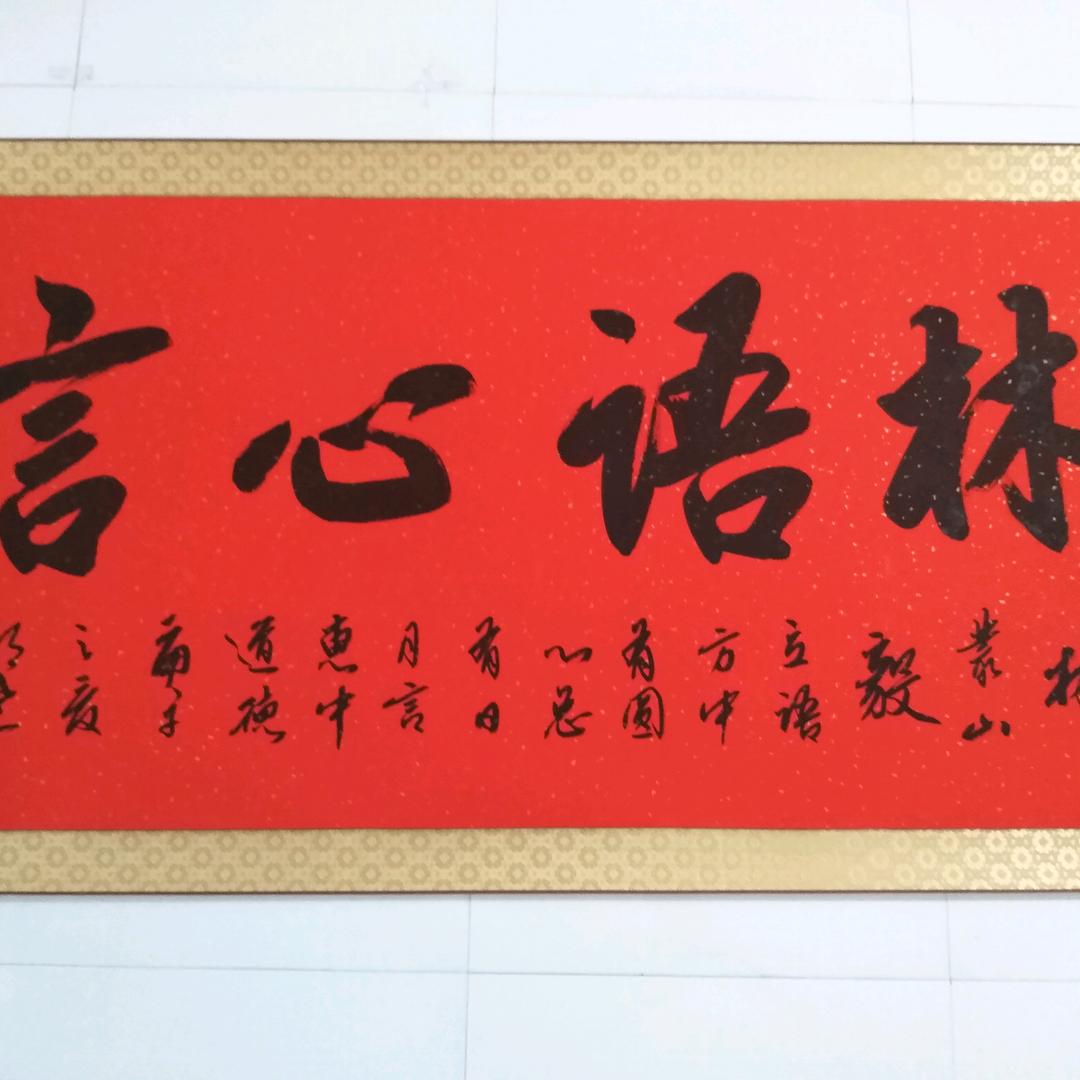 林语心言
林
山
毅
立语
方中
有圆
心总
有日
月言
惠中
道德
子
之